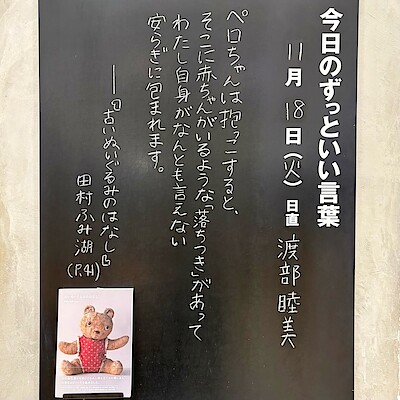 今日のずっといい言葉
11月18日(火)日直 渡部睦美
ペロちゃんは抱っこすると、
そこに赤ちゃんがいるような「落ちつき」があって
わたし自身がなんとも言えない
安らぎに包まれます。
——『古いぬいぐるみのはなし』
田村ふみ湖
(P.41)